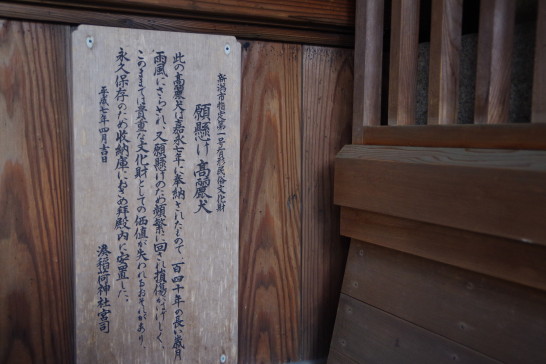 新潟市指定第一号有形民俗文化財
願懸け 高麗犬
此の高麗犬は嘉永七年に奉納されたもので、百四十年の長い歳月
雨風にさらされ、又願懸けのため頻繁に回され損傷がはげしく、
このままでは貴重な文化財としての価値が失われるおそれがあり
永久保存のため収納庫におさめ拝殿内に安置した。
平成七年四月吉日
湊稲荷神社宮司